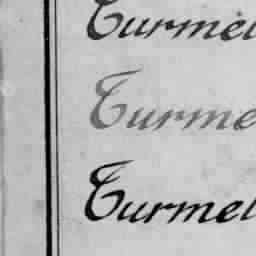 Turmel
Turme
Turmel